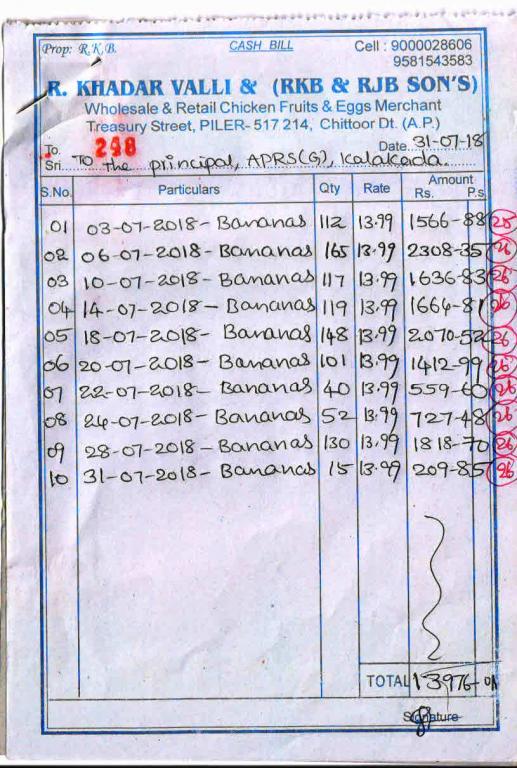 Prop: R.K.B. CASH BILL Cell : 9000028606
9581543583
R. KHADAR VALLI & (RKB & RJB SON'S)
Wholesale & Retail Chicken Fruits & Eggs Merchant
Treasury Street, PILER- 517 214, Chittoor Dt. (A.P.)
To. 298 Date. 31-07-18
Sri. To the principal, APRS(G), Kalakada.
S.No. Particulars Qty Rate Amount Rs. P.s
01 03-07-2018- Bananas 112 13.99 1566-88 26
02 06-07-2018- Bananas 165 13.99 2308-35 26
03 10-07-2018- Bananas 117 13.99 1636-83 26
04 14-07-2018- Bananas 119 13.99 1664-81 26
05 18-07-2018- Bananas 148 13.99 2070-52 26
06 20-07-2018- Bananas 101 13.99 1412-99 26
07 22-07-2018- Bananas 40 13.99 559-60 26
08 24-07-2018- Bananas 52 13.99 727-48 26
09 28-07-2018- Bananas 130 13.99 1818-70 26
10 31-07-2018- Bananas 15 13.99 209-85 26
TOTAL 13976-01
Signature